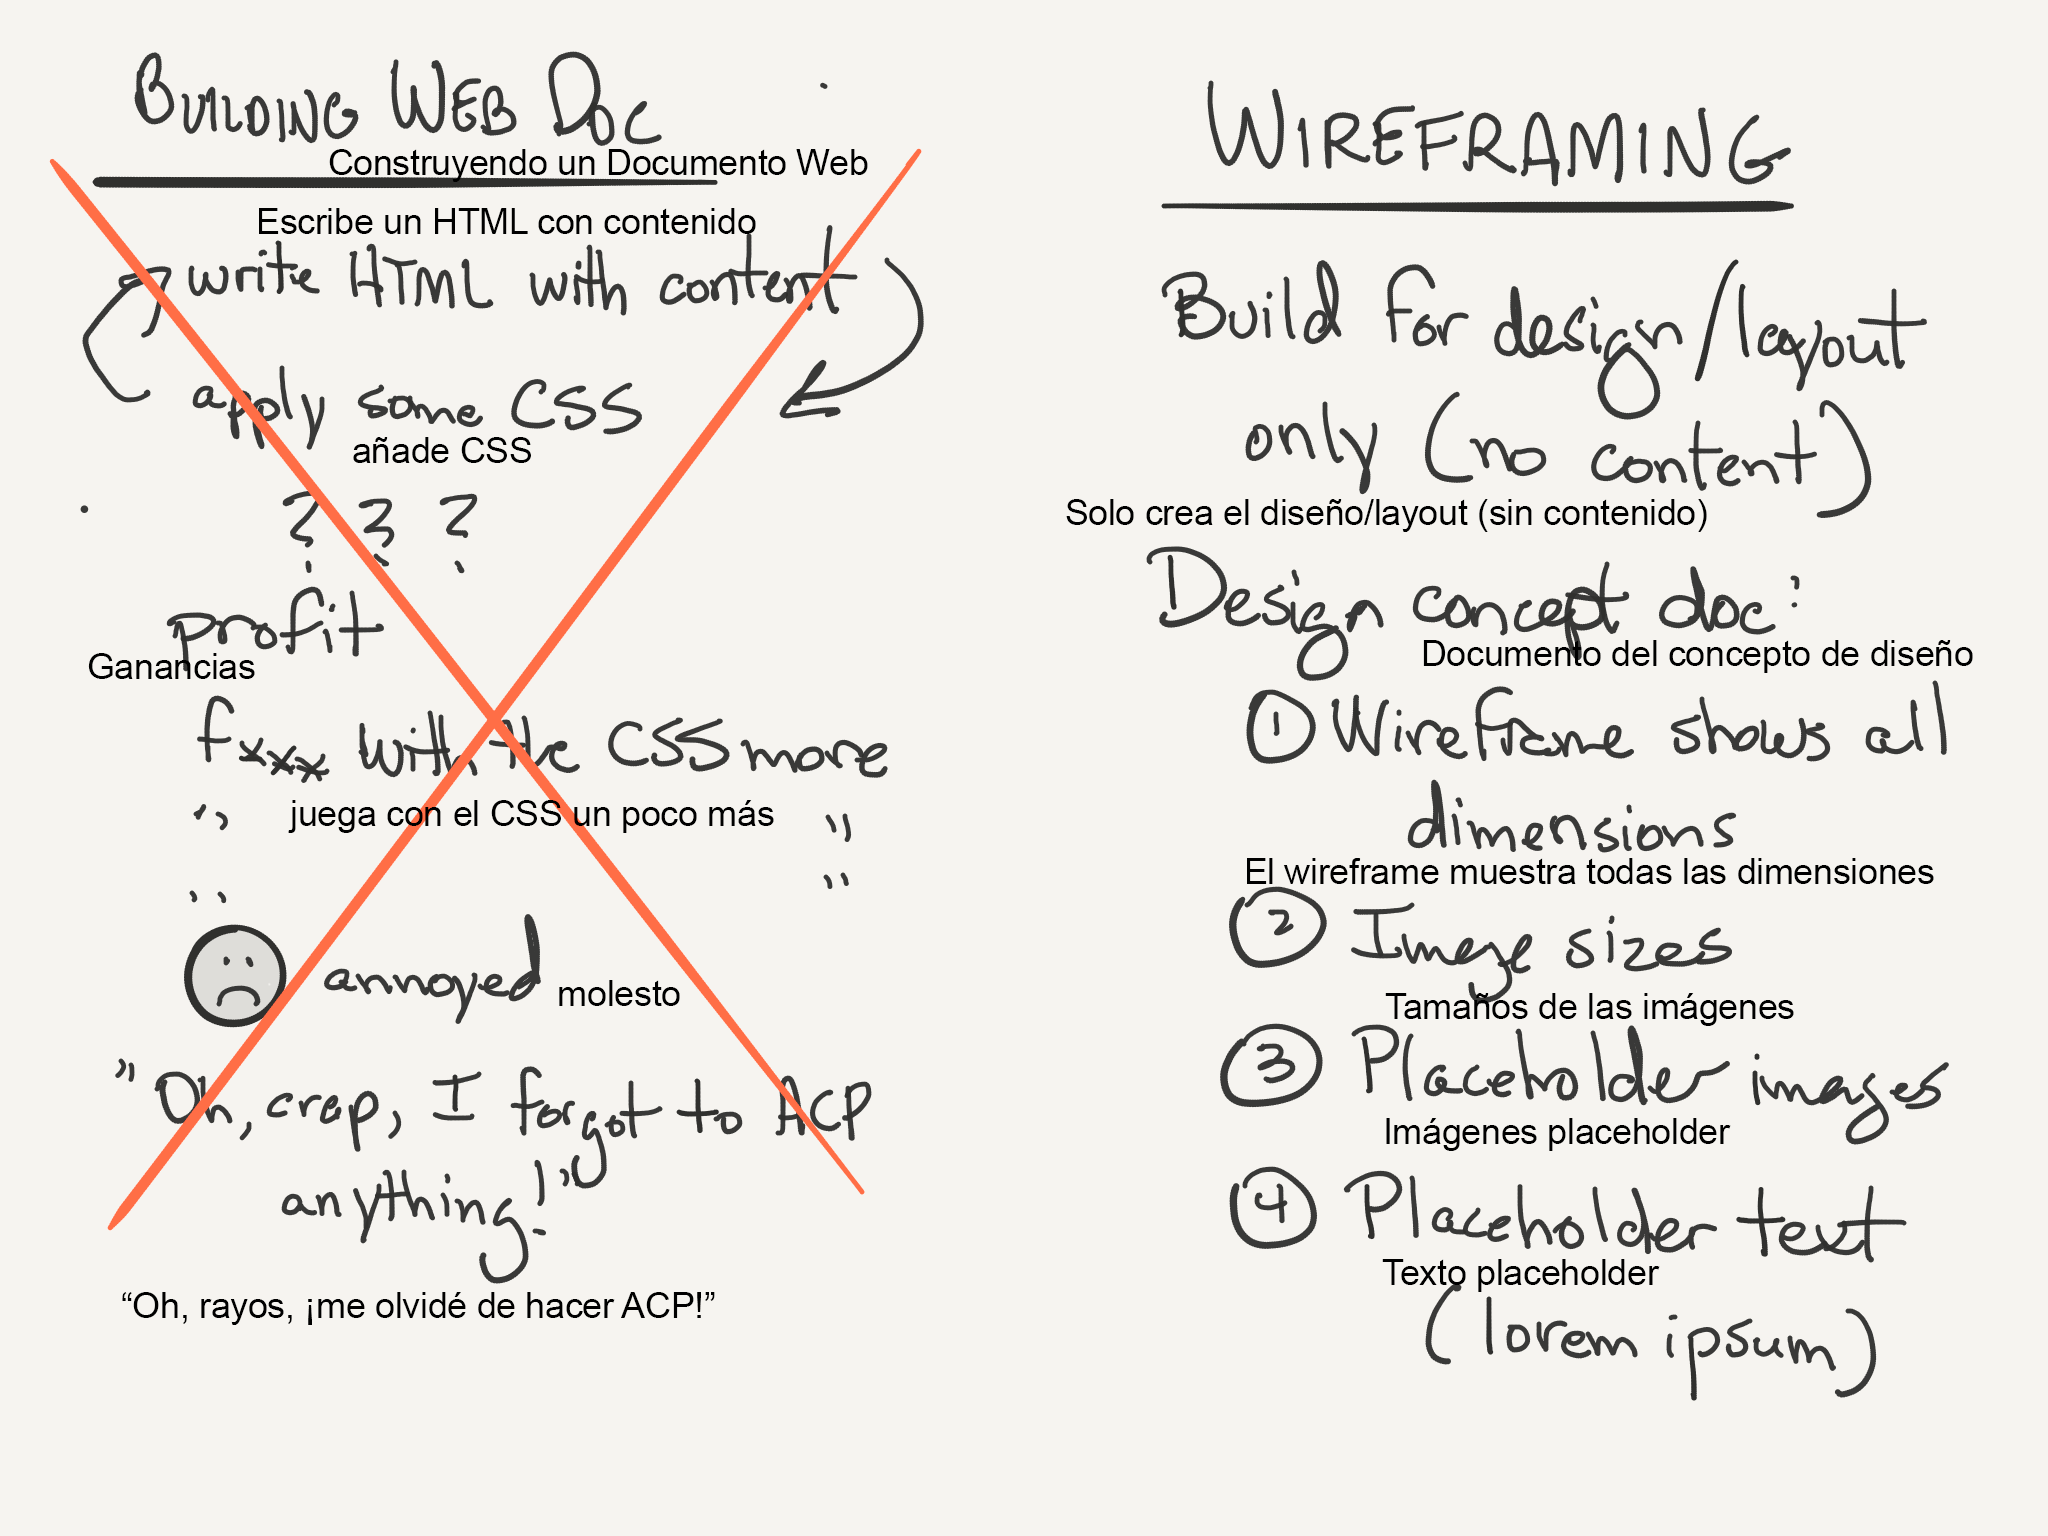 BUILDING WEB DOC
Construyendo un Documento Web
Escribe un HTML con contenido
write HTML with content
apply some CSS
añade CSS
? ? ?
profit
Ganancias
fxxx with the CSS more
juega con el CSS un poco más
" "
" "
annoyed molesto
"Oh, crap, I forgot to ACP
anything!"
“Oh, rayos, ¡me olvidé de hacer ACP!”
WIREFRAMING
Build for design/layout
only (no content)
Solo crea el diseño/layout (sin contenido)
Design concept doc:
Documento del concepto de diseño
1 Wireframe shows all
dimensions
El wireframe muestra todas las dimensiones
2 Image sizes
Tamaños de las imágenes
3 Placeholder images
Imágenes placeholder
4 Placeholder text
Texto placeholder
(lorem ipsum)